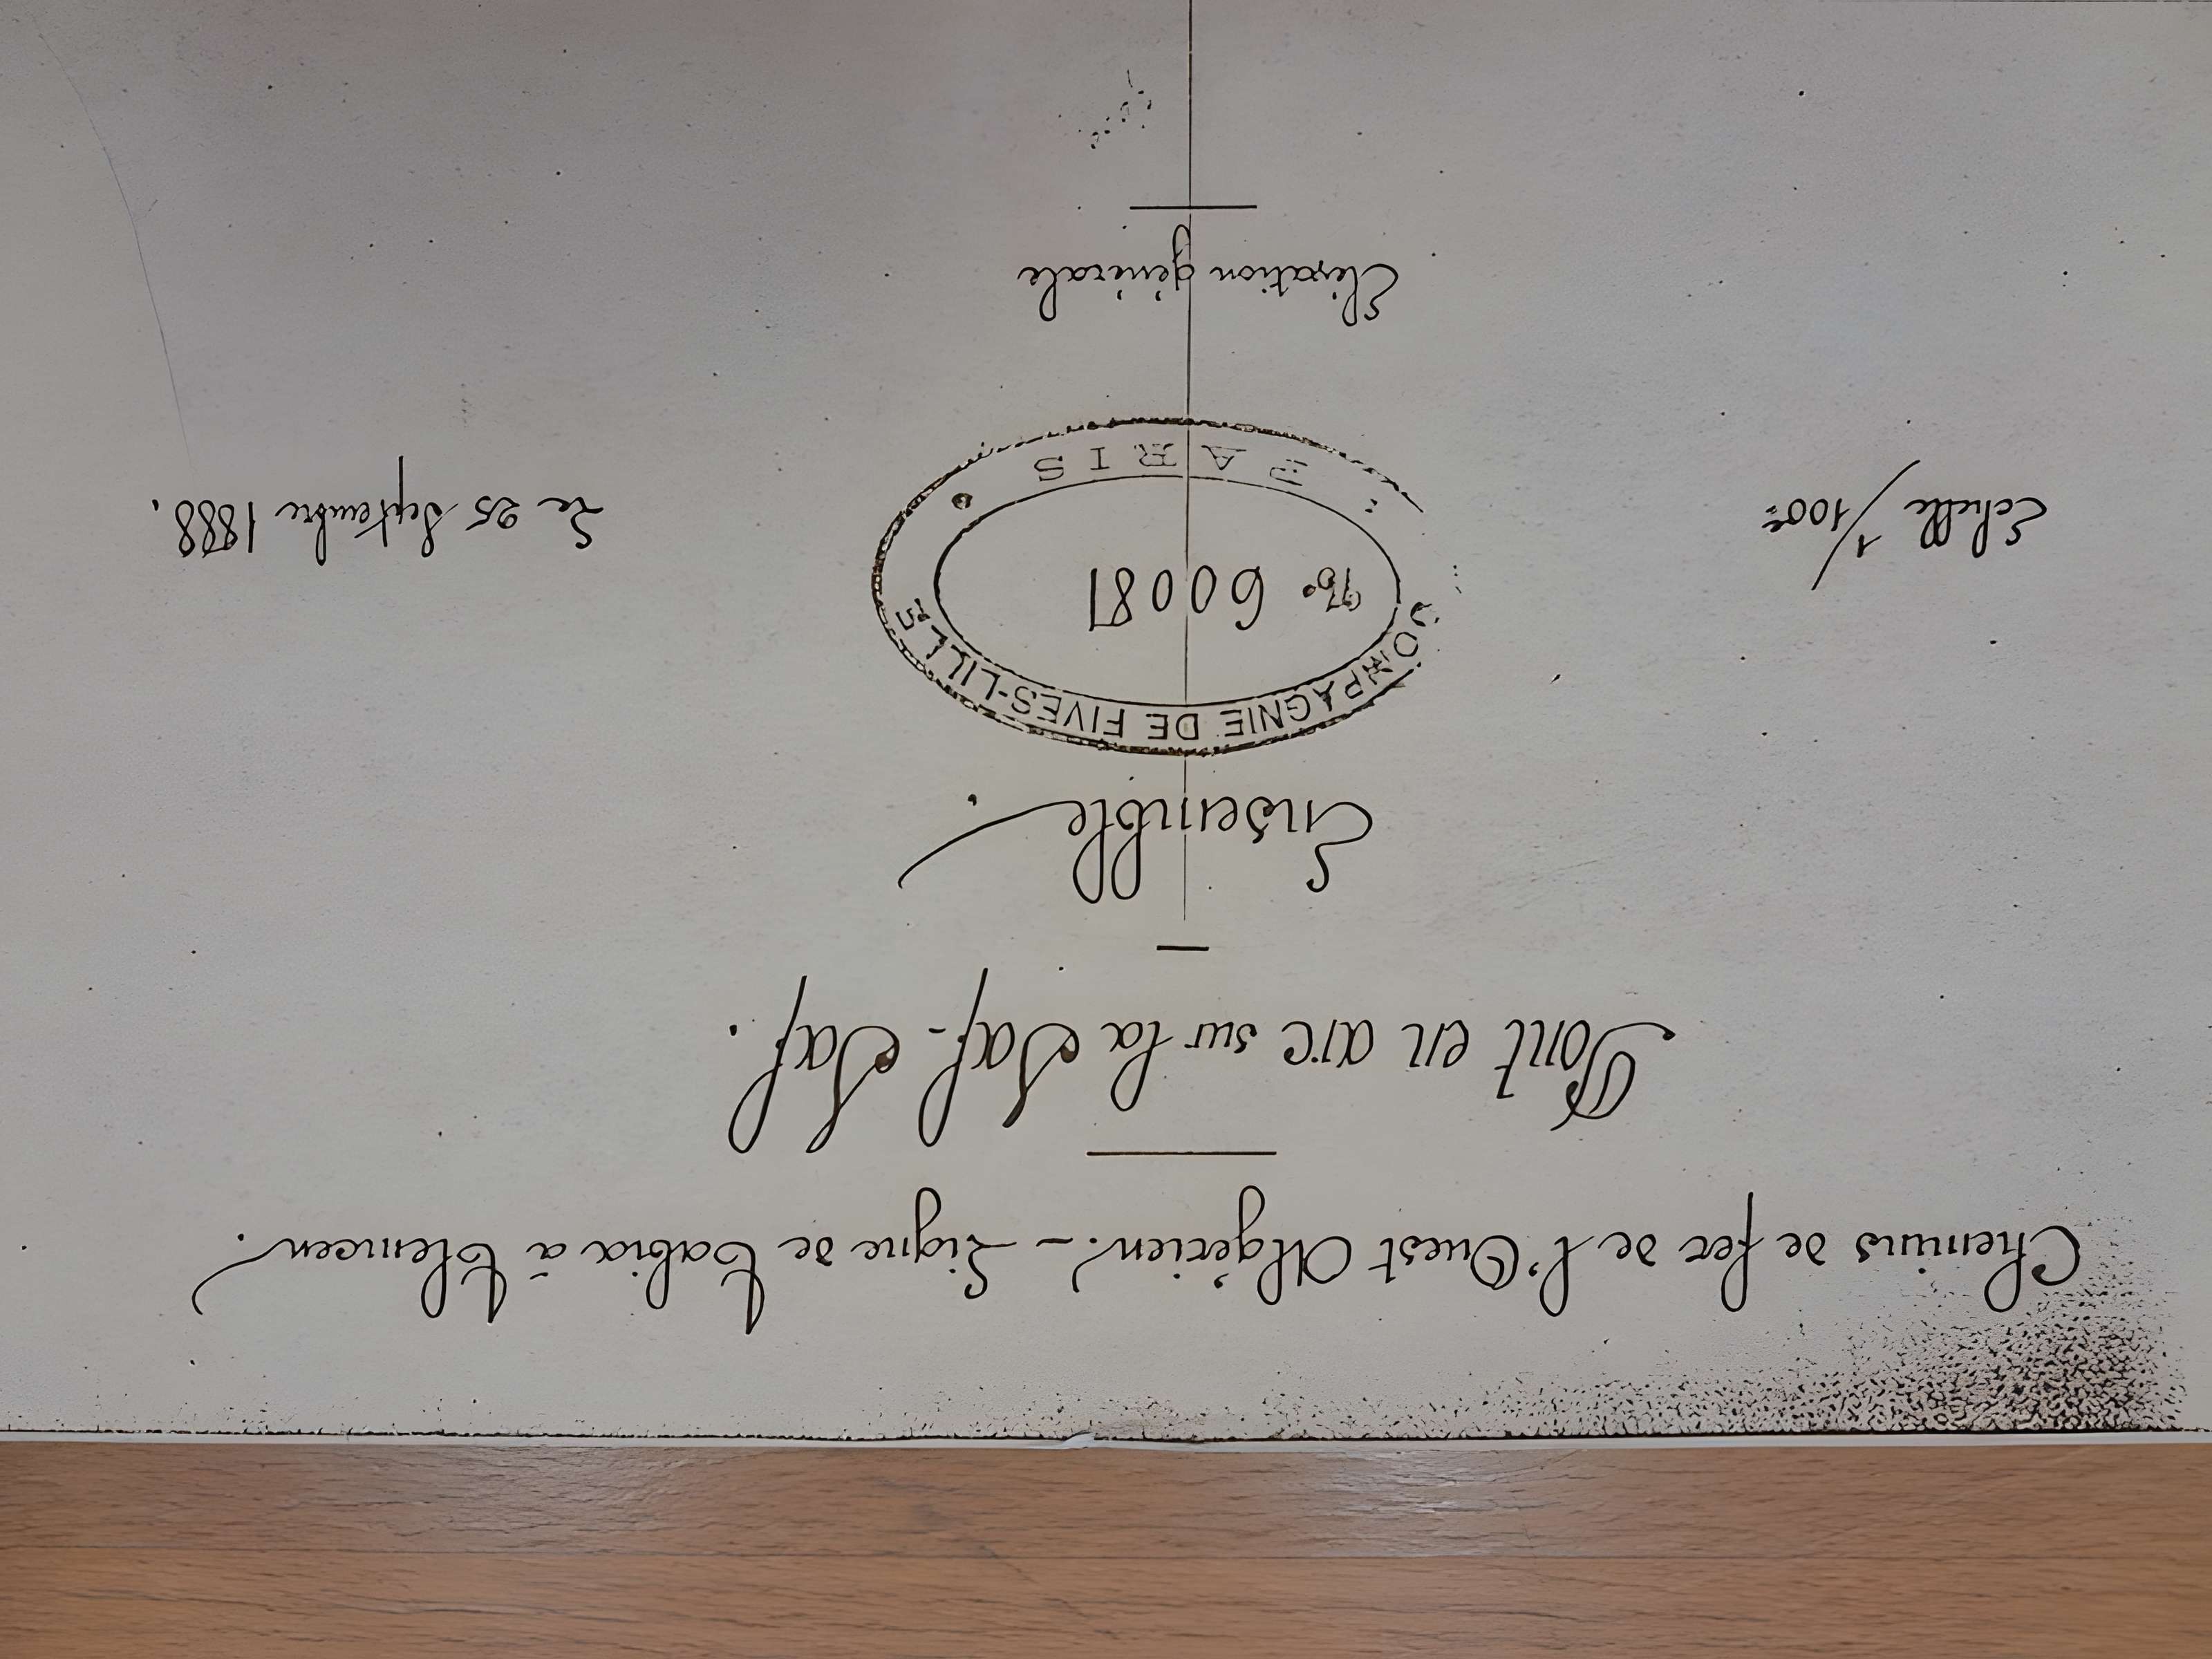 Chemins de fer de l'Ouest Algérien. - Ligne de Tabia à Tlemcen.
Pont en arc sur la Saf-Saf.
Ensemble.
COMPAGNIE DE FIVES-LILLE
Echelle 1/100e
No. 60081
Le 25 Septembre 1888.
PARIS
Elévation générale